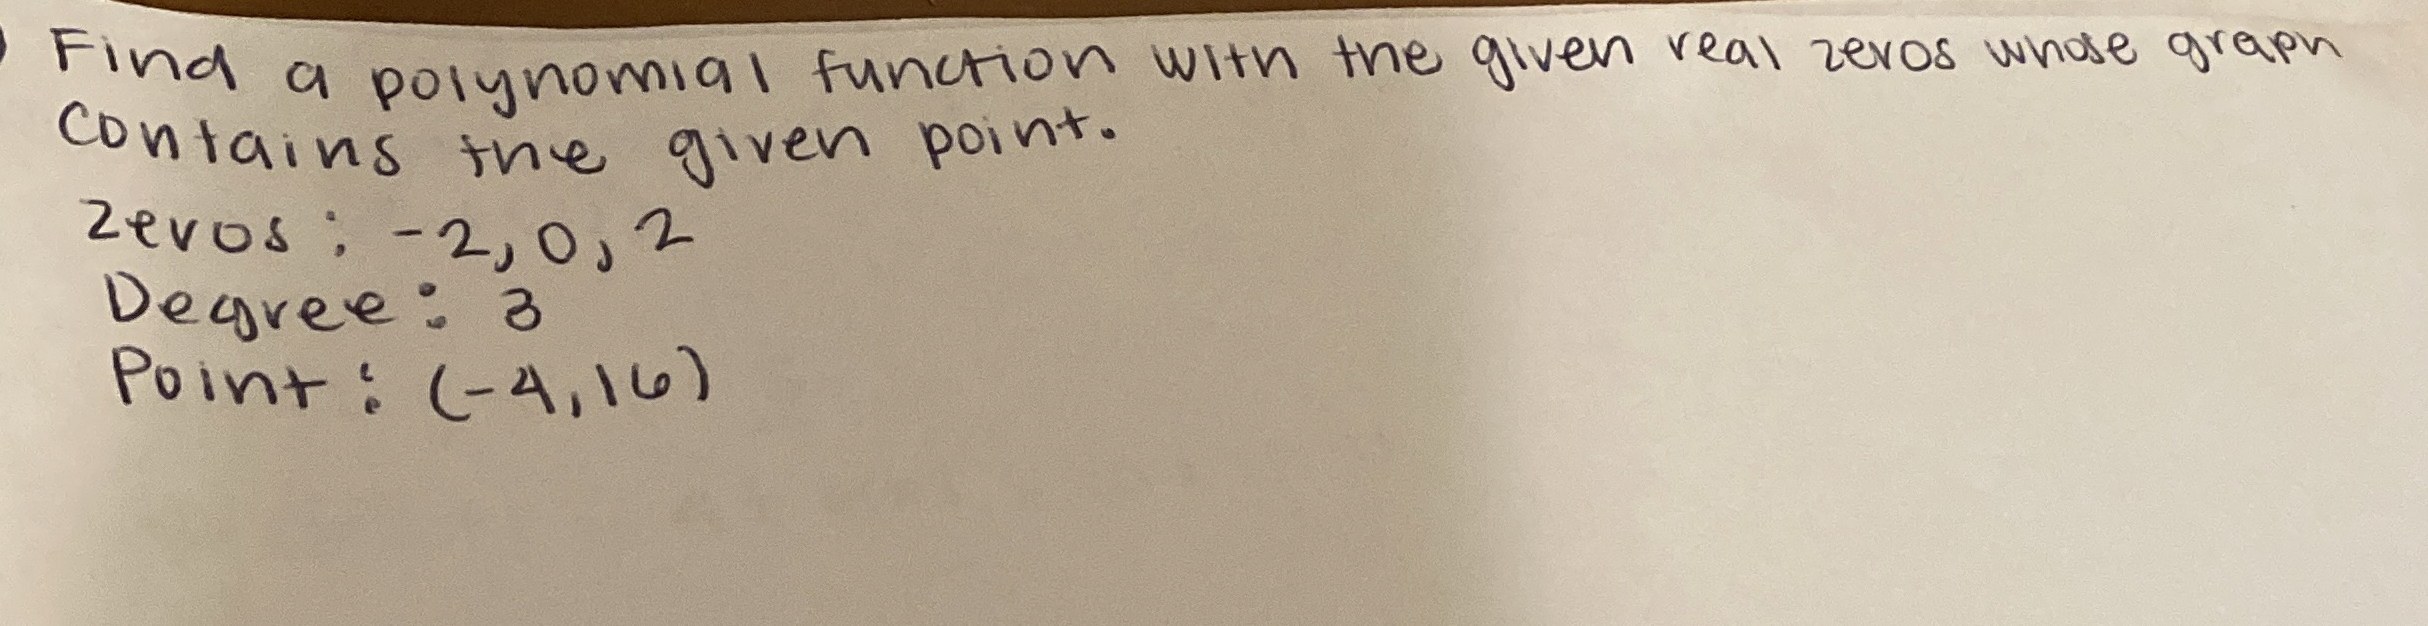 Find a polynomial function with the given real zeros whose graph
contains the given point.
Zeros: -2, 0, 2
Degree: 3
Point: (-4, 16)